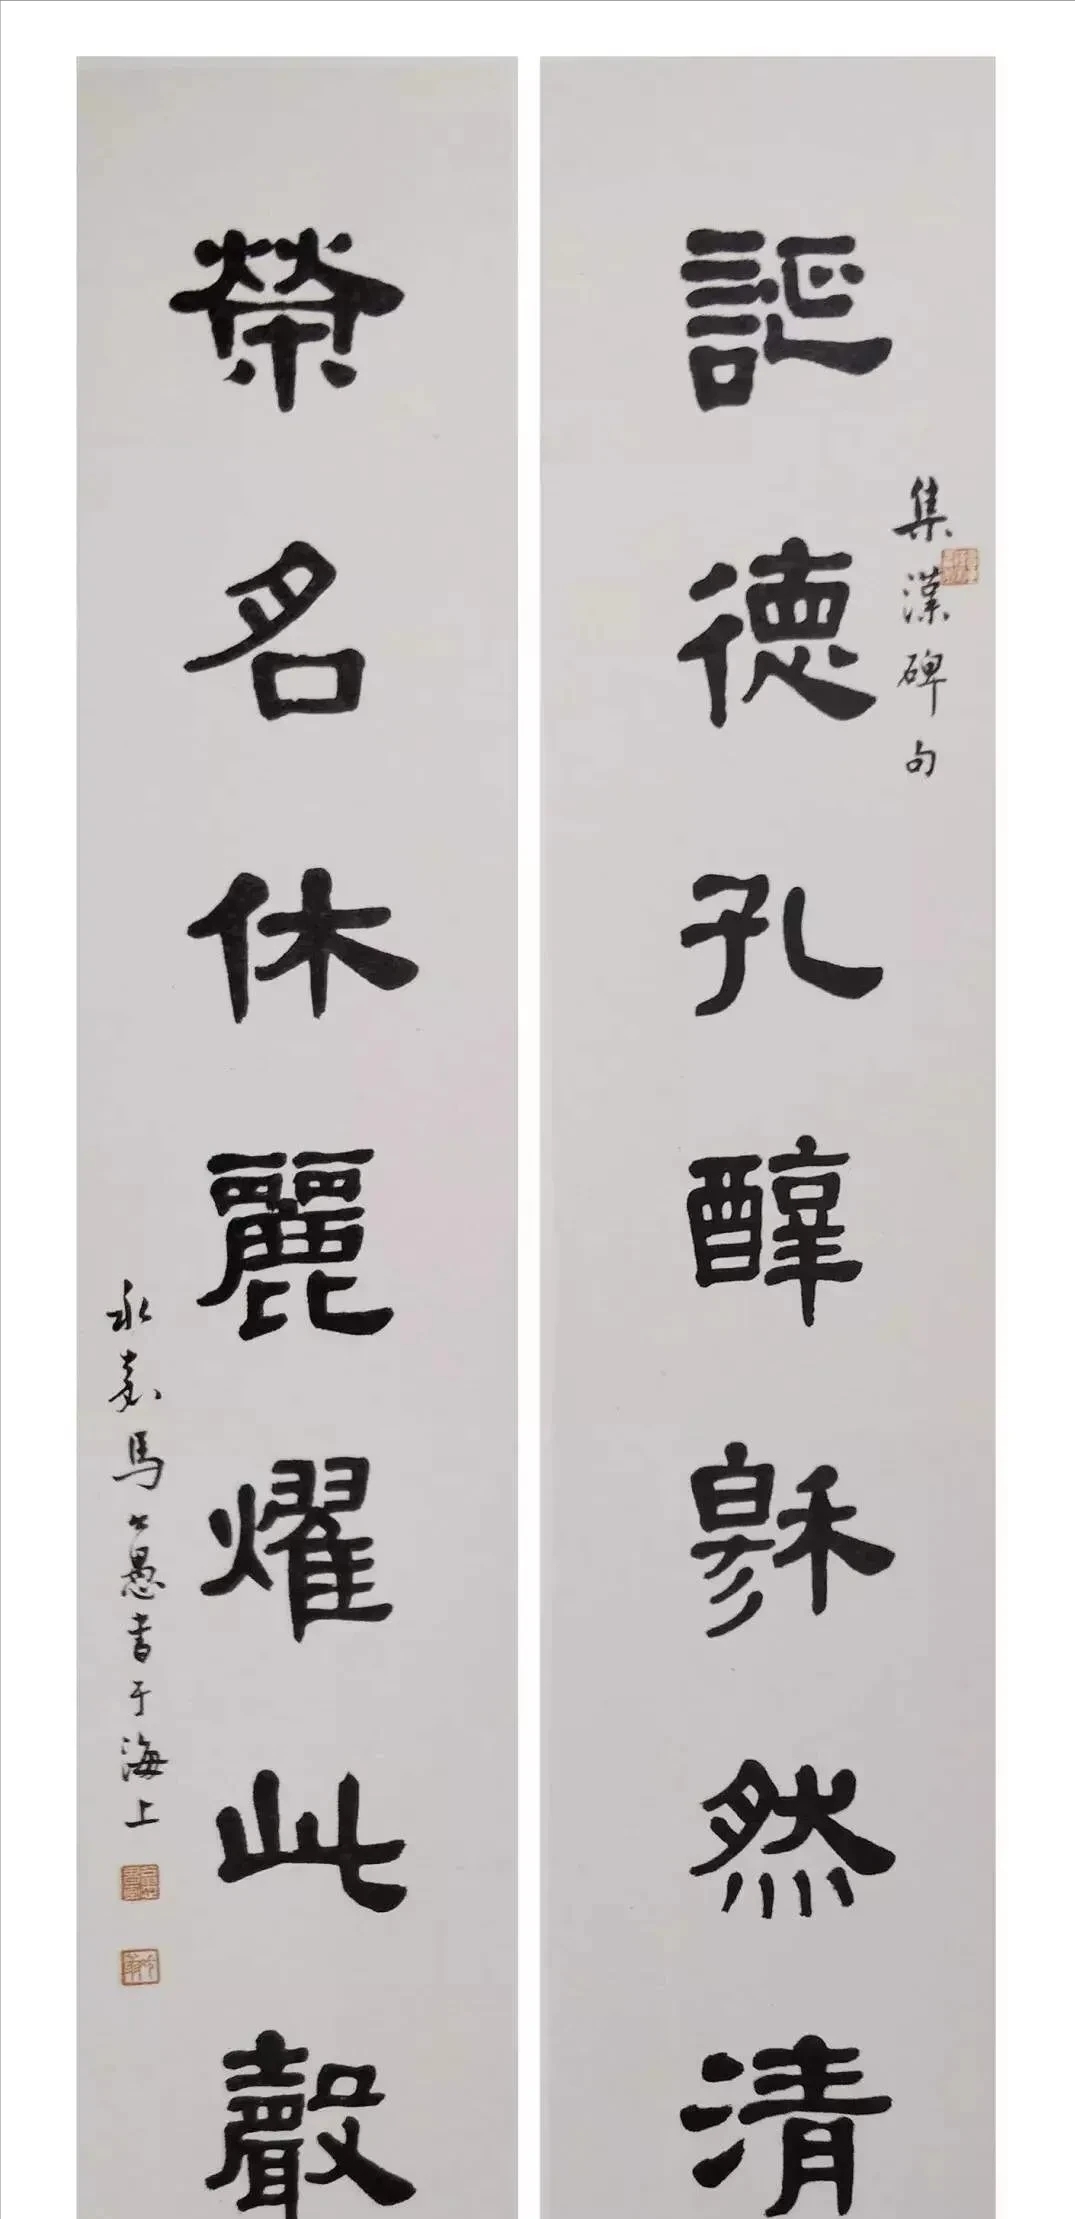 集漢碑句
誕德孔醇穆然清
榮名休麗燿此聲
永嘉馬公愚书于海上